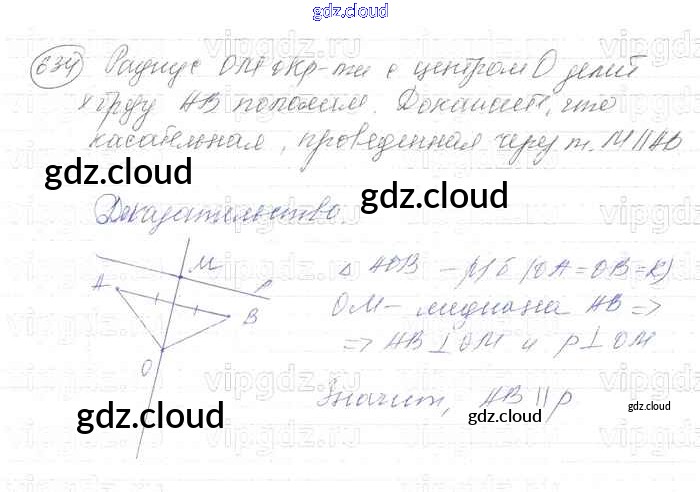 gdz.cloud
634 Радиус ОМ окр-ти с центром О делит
хорду АВ пополам. Докажите, что
касательная, проведенная через т. М || АВ
gdz.cloud
gdz.cloud
Доказательство.
М
А
р
В
О
Δ АОВ - р/б (ОА=ОВ=R)
ОМ - медиана АВ =>
=> АВ ⊥ ОМ и р ⊥ ОМ
Значит, АВ || р
gdz.cloud
gdz.cloud
gdz.cloud
gdz.cloud